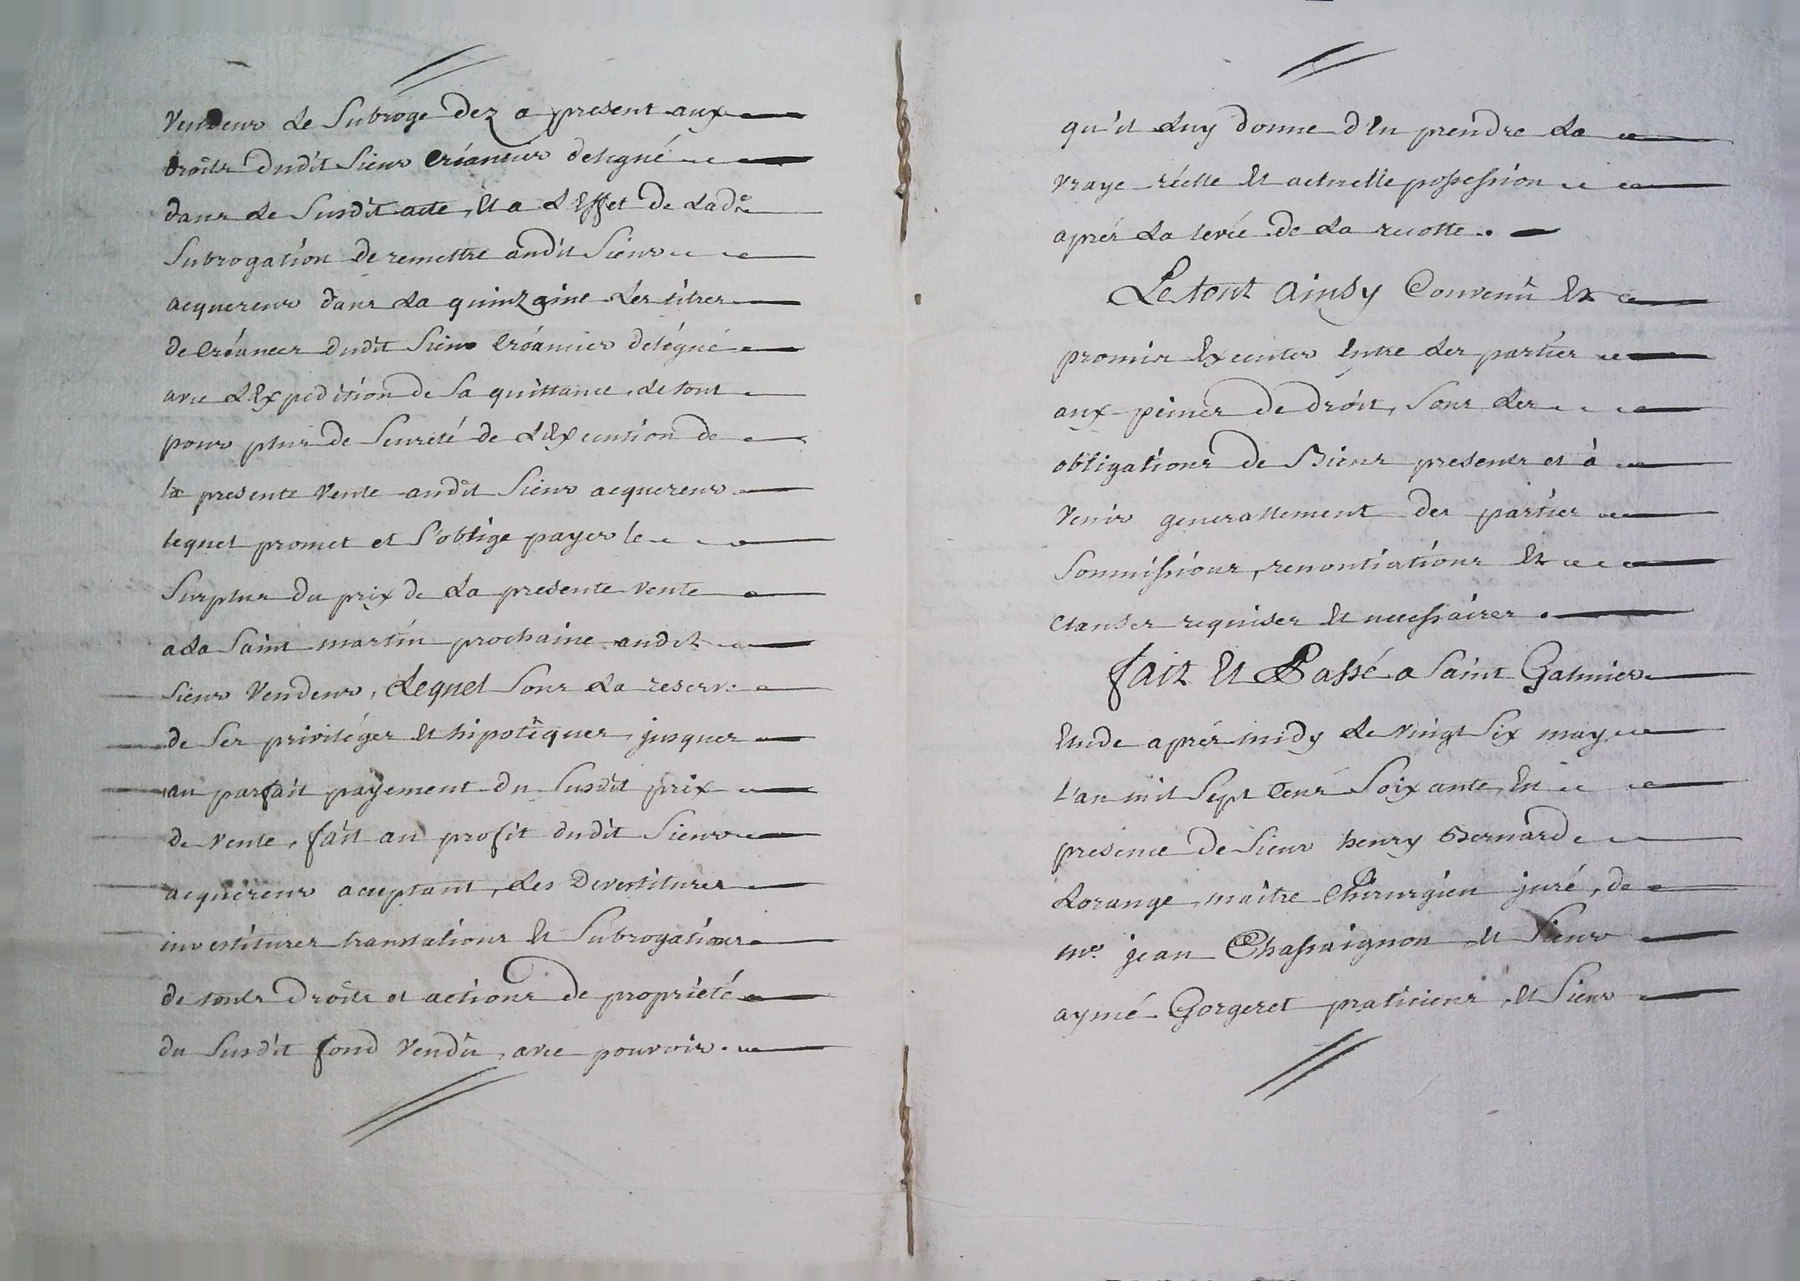 Vendeur Le Subroge dez a present aux
droits dudit Sieur Créancier delegué
dans Le Susdit acte, Et a L'Effet de Ladte
Subrogation de remettre audit Sieur
acquereur dans La quinzaine Les titres
de Créances dudit Sieur Créancier délégué
avec L'Expedition de Sa quittance, Le tout
pour plus de Seureté de L'Execution de
la presente Vente audit Sieur acquereur
lequel promet et S'oblige payer le
Surplus du prix de La presente Vente
a La Saint martin prochaine audit
Sieur Vendeur, Lequel Sous La reserve
de Ses priviléges Et hipotêques jusques
au parfait payement du Susdit prix
de Vente, fait au profit dudit Sieur
acquereur acceptant, Les Devestitures
investitures translations Et Subrogations
de touts Droits et actions de propriété
du Susdit fond Vendû, avec pouvoir
qu'il Luy donne d'En prendre La
vraye réelle Et actuelle possession
aprés La levée de La recolte.
Le tout ainsy Convenû Et
promis Executer Entre Les parties
aux peines de droit, Sous Les
obligations de Biens presents et à
Venir generallement des parties
Soumissions, renontiations Et
clauses requises Et necessaires.
fait Et Passé a Saint Galmier
Etude aprés midy Le Vingt Six may
L'an mil Sept Cens Soixante, En
presence de Sieur henry Bernard
Lorange maître Chirurgien juré, de
me. jean Chassaignon et Sieur
aymé Gorgeret praticiens, Et Sieur